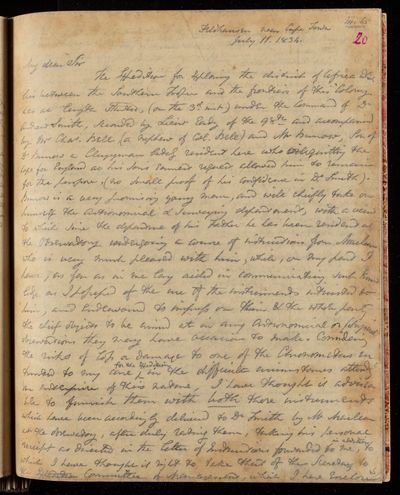 20
Feldhausen near Cape Town
July 11. 1834.
My dear Sir
The Expedition for exploring the district of Africa
between the Southern Tropic and the frontiers of this Colony
has at length started, (on the 3d inst.) under the Command of Dr
Andrew Smith, seconded by Lieut. of the 98th and accompanied
by Mr Chas. Bell (a nephew of Col. Bell) and Mr Burrow, Son of
Dr Burrow a Clergyman lately resident here who on quitting the
Cape for England at his Son's earnest request allowed him to remain
for the purpose, (no small proof of his confidence in Dr Smith).
Mr Burrow is a very promising young man, and will chiefly take on
himself the Astronomical & Surveying department, with a view
to which since the departure of his Father he has been resident at
the Observatory undergoing a course of instruction from Mr Maclear
who is very much pleased with him, while, on my part I
have, as far as in me lay aided in communicating such
as I possessed of the use of the instruments intrusted to
him, and endeavored to impress on him & the whole party
the chief objects to be aimed at in any Astronomical or
observations they may have occasion to make. Considering
the risks of loss & damage to one of the Chronometers in
trusted to my care, for the Expedition in the difficult circumstances attending
an enterprize of this nature, I have thought it advisa
ble to furnish them with both those instruments
which have been accordingly delivered to Dr Smith by Mr Maclear
at the Observatory, after duly rating them, taking his personal
receipt as directed in the letter of Instructions forwarded to me, to
which I have thought it right to take that of the Secretary to
the Committee of Management, which I have enclosed